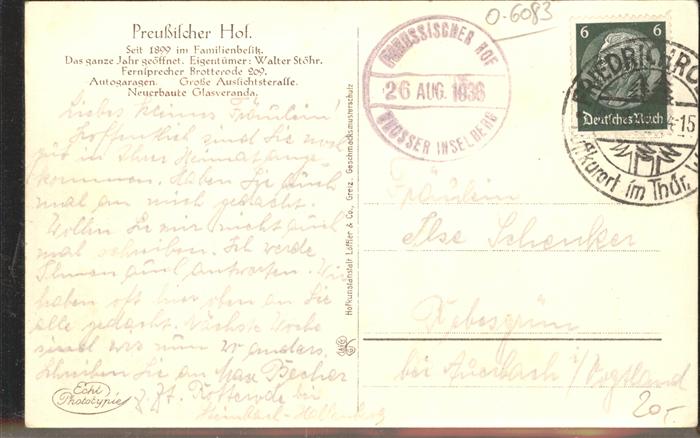 Preußischer Hof.
Seit 1899 im Familienbesitz.
Das ganze Jahr geöffnet. Eigentümer: Walter Stöhr.
Fernsprecher Brotterode 209.
Autogaragen. Große Aussichtsterasse.
Neuerbaute Glasveranda.
Liebes kleines Fräulein
Hoffentlich sind Sie
gut in Ihrer Heimat ange-
kommen. Haben Sie auch
mal an mich gedacht.
Wollen Sie mir nicht auch
mal schreiben. Ich werde
Ihnen auch antworten. Wir
haben oft hier oben an Sie
alle gedacht. Nächste Woche
sind wir nun
Schreiben Sie an Max Becher
z. Zt. Rotterode bei
Steinbach-Hallenberg
Echt
Photolypie
Hofkunstanstalt Löffler & Co., Greiz. Geschmacksmusterschutz
PREUSSISCHER HOF
26 AUG. 1936
GROSSER INSELBERG
0-6083
6 6
Deutsches Reich
FRIEDRICHRO
-15
Kurort im Thür.
Fräulein
Ilse Schenker
Rebesgrün
bei Auerbach i/Vogtland
20.-